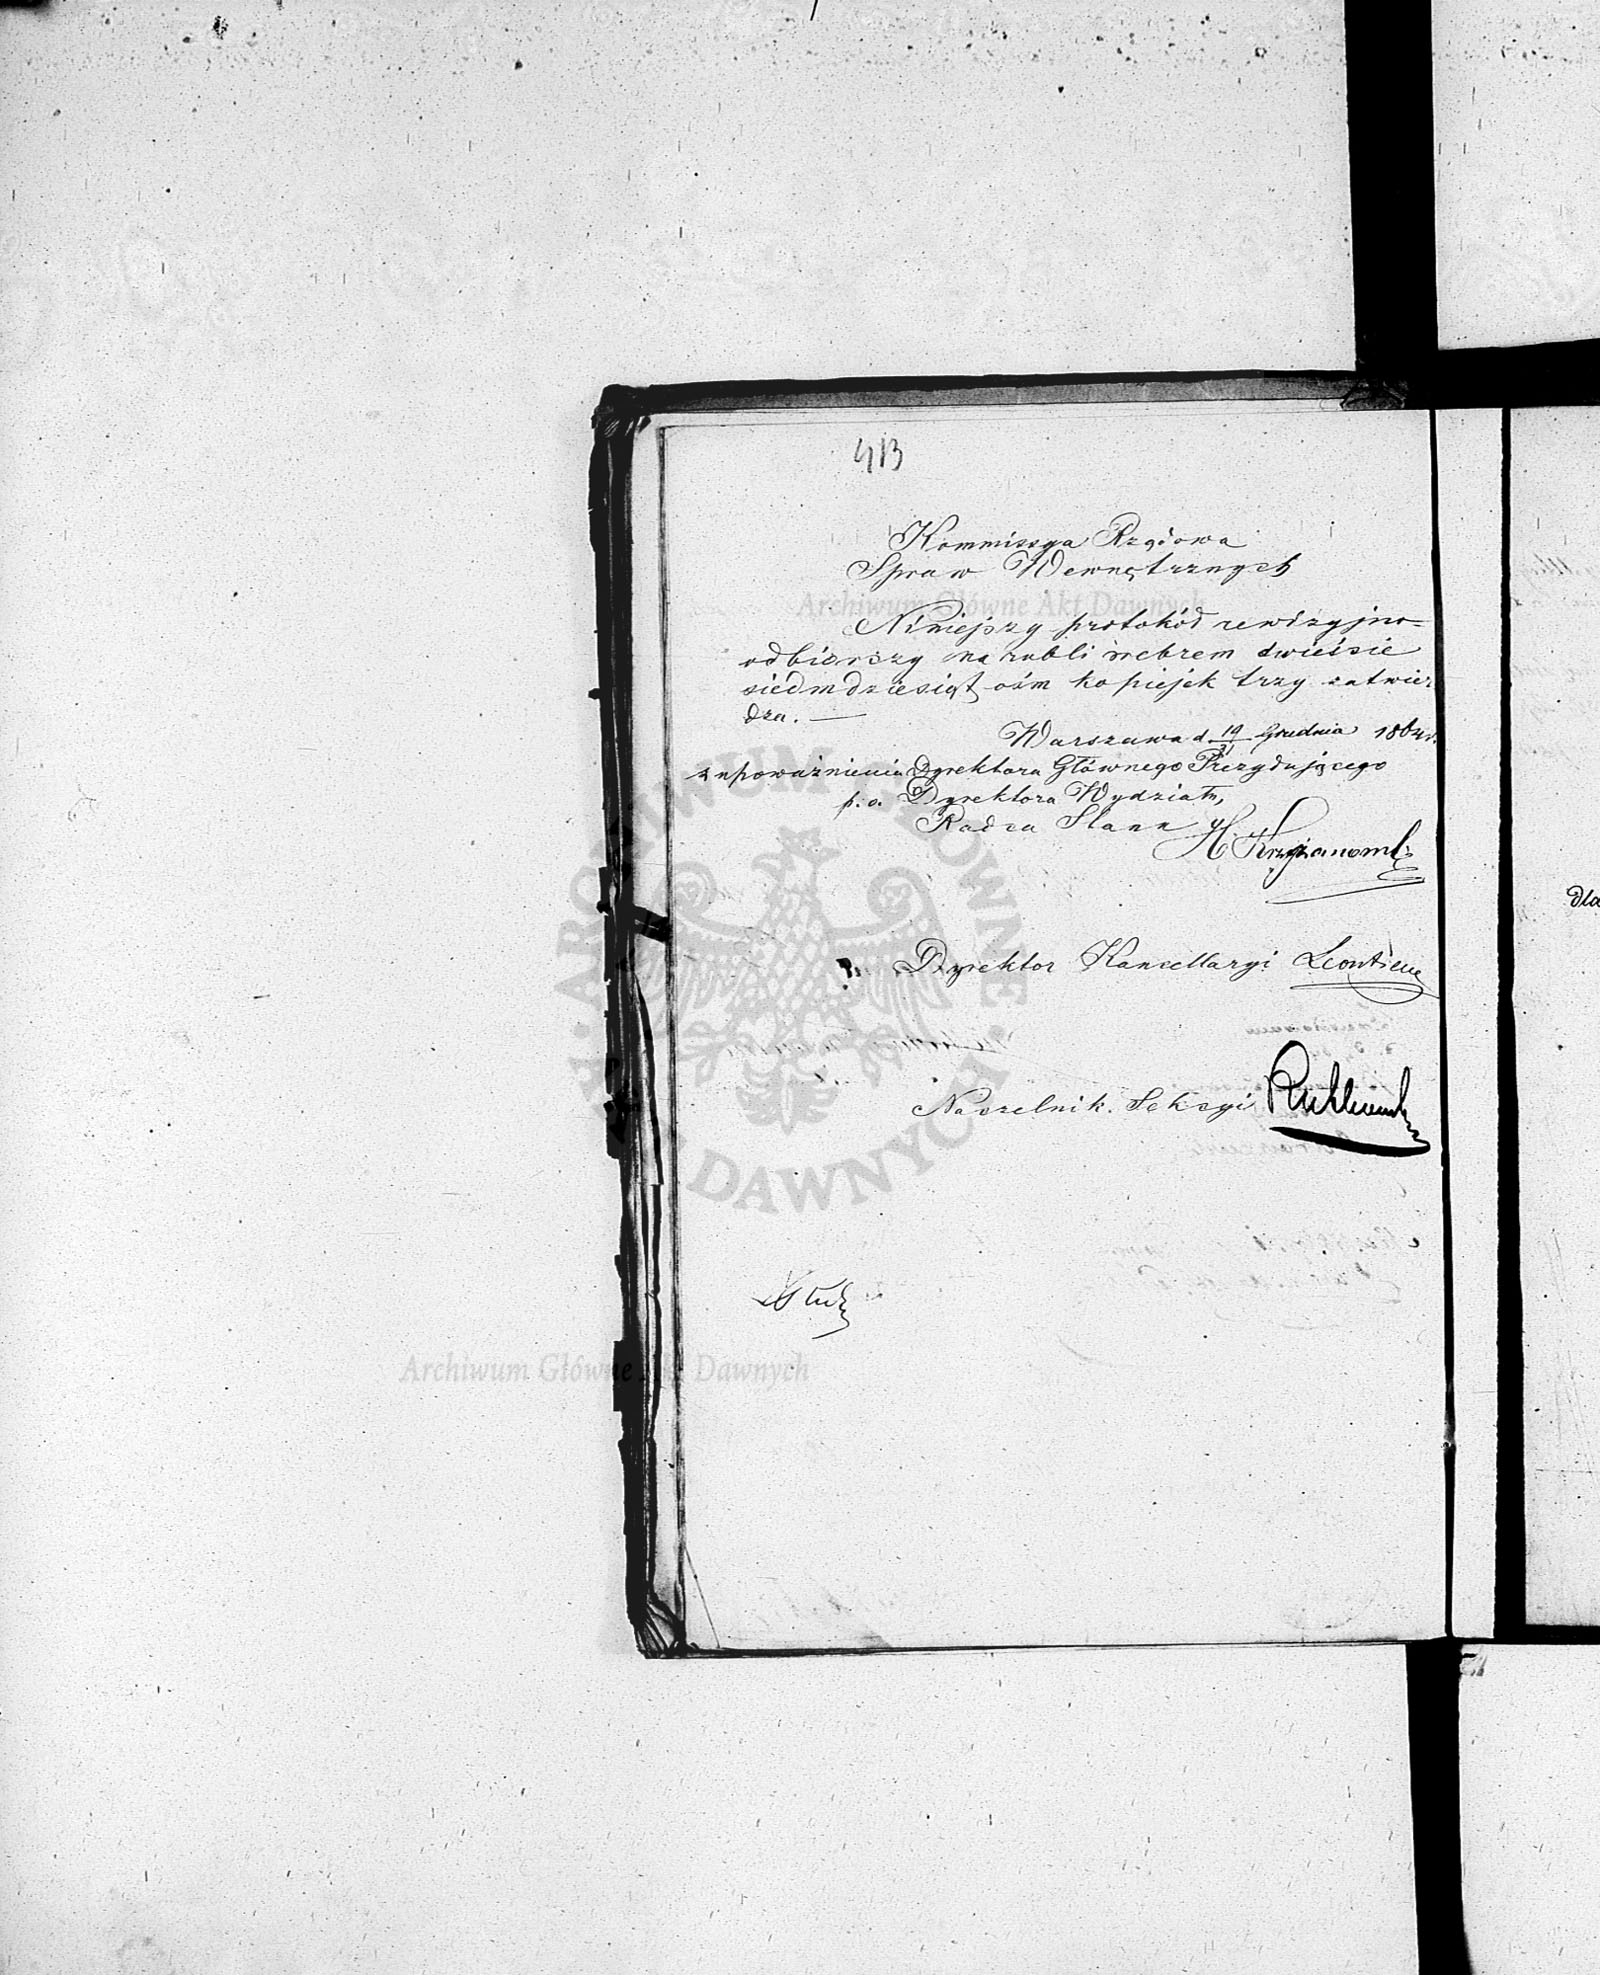 413
Kommissya Rządowa
Spraw Wewnętrznych
Niniejszy protokół rewizyjno=
odbiorczy na rubli srebrem dwieście
siedmdziesiąt ośm kopiejek trzy zatwier
dza. —
Warszawa d 19/31 Grudnia 1864 r.
z upoważnienia Dyrektora Głównego Prezydującego
p. o. Dyrektora Wydziału,
Radca Stanu
Dyrektor Kancellaryi
Naczelnik Sekcyi
dla
Archiwum Główne Akt Dawnych
Archiwum Główne Akt Dawnych
ARCHIWUM GŁÓWNE AKT DAWNYCH